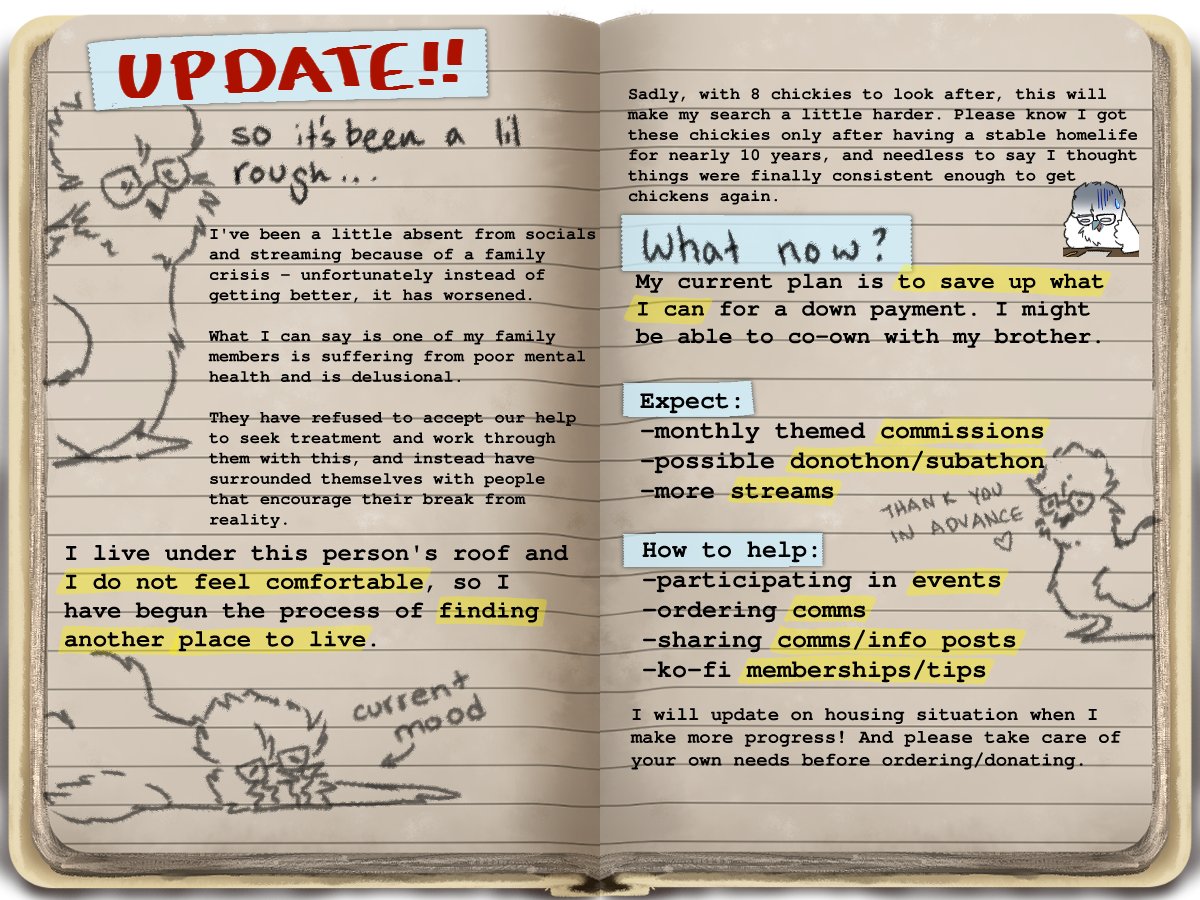 UPDATE!!
so it's been a lil
rough...
I've been a little absent from socials
and streaming because of a family
crisis - unfortunately instead of
getting better, it has worsened.
What I can say is one of my family
members is suffering from poor mental
health and is delusional.
They have refused to accept our help
to seek treatment and work through
them with this, and instead have
surrounded themselves with people
that encourage their break from
reality.
I live under this person's roof and
I do not feel comfortable, so I
have begun the process of finding
another place to live.
current
mood
Sadly, with 8 chickies to look after, this will
make my search a little harder. Please know I got
these chickies only after having a stable homelife
for nearly 10 years, and needless to say I thought
things were finally consistent enough to get
chickens again.
What now?
My current plan is to save up what
I can for a down payment. I might
be able to co-own with my brother.
Expect:
-monthly themed commissions
-possible donothon/subathon
-more streams
THANK YOU
IN ADVANCE
How to help:
-participating in events
-ordering comms
-sharing comms/info posts
-ko-fi memberships/tips
I will update on housing situation when I
make more progress! And please take care of
your own needs before ordering/donating.